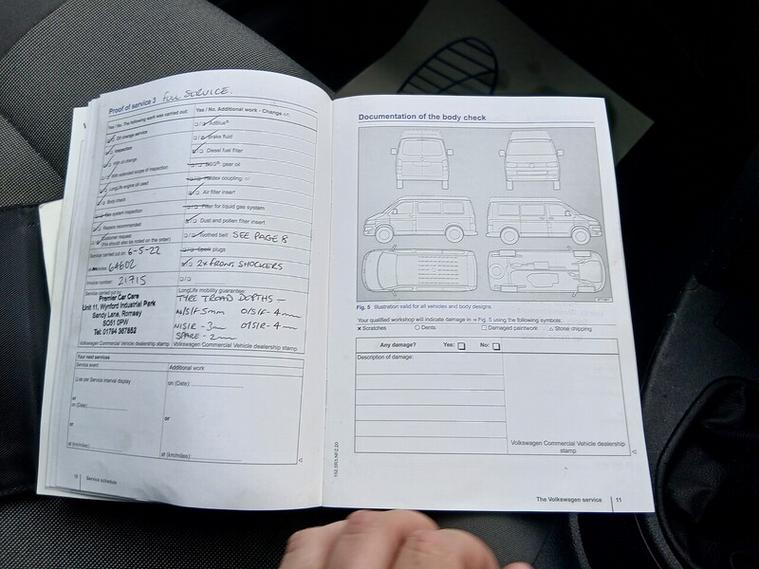 Proof of service 3 FULL SERVICE.
Yes / No. The following work was carried out:
Oil change service
Inspection
With oil change
With extended scope of inspection
LongLife engine oil used
Body check
Gas system inspection
Repairs recommended
Customer request
(this should also be noted on the order)
Service carried out on: 6-5-22
at miles: 64602
Invoice number: 21715
Service carried out by:
Premier Car Care
Unit 11, Wynford Industrial Park
Sandy Lane, Romsey
SO51 0PW
Tel: 01794 367852
Volkswagen Commercial Vehicle dealership stamp
Yes / No. Additional work - Change of:
AdBlue®
Brake fluid
Diesel fuel filter
DSG® gear oil
Haldex coupling oil
Air filter insert
Filter for liquid gas system
Dust and pollen filter insert
Toothed belt SEE PAGE 8
Spark plugs
2x FRONT SHOCKERS
LongLife mobility guarantee:
TYRE TREAD DEPTHS —
N/S/F 5mm O/S/F- 4mm
N/S/R - 3mm O/S/R- 4mm
SPARE - 2mm
Volkswagen Commercial Vehicle dealership stamp
Your next services
Service event
Additional work
as per Service interval display
or
on (Date):
or
at (km/miles):
on (Date):
or
at (km/miles):
10 Service schedule
Documentation of the body check
Fig. 5 Illustration valid for all vehicles and body designs.
Your qualified workshop will indicate damage in ⇒ Fig. 5 using the following symbols:
× Scratches ○ Dents □ Damaged paintwork △ Stone chipping
Any damage? Yes: □ No: □
Description of damage:
Volkswagen Commercial Vehicle dealership
stamp
The Volkswagen service 11